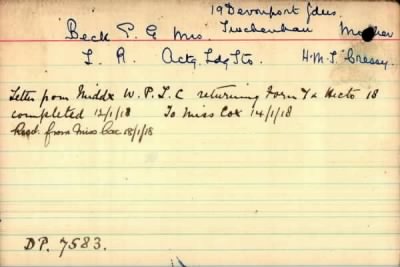 19 Devonport Gdns
Beck P. G Mrs. Twickenham Mother
L. R. Actg. Ldg Sto. H.M.S. Cressy.
Letter from Middx W. P. S. C returning Form
18
completed 12/1/18 To Miss Cox 14/1/18
Recd. from Miss Cox 18/1/18
D.P. 7583.